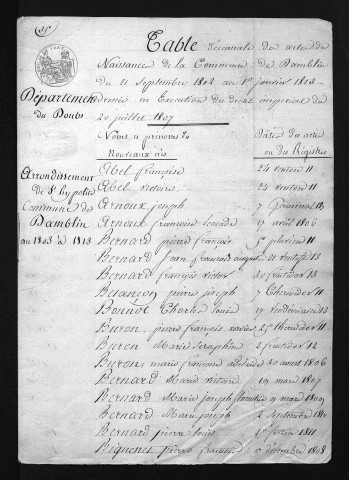 Table décennale des actes de
Naissance de la Commune de Damblin
du 21 Septembre 1802 au 1er janvier 1813
dressée en Execution du décret impérial du
20 juillet 1807
Département
du Doubs
Arrondissement
de St hypolite
Commune de
Damblin
au 1803 à 1813
Noms et prénoms des
Nouveaux nés
Dates des actes
ou des Registres
Abel françoise 24 ventose 11
Abel victoire 24 ventose 11
Arnoux joseph 7 germinal 12
Arnoux françoise 17 avril 1806
Bernard pierre françois 5 pluviose 11
Bernard jean françois 13
Bernard françois victor 20 fructidor 13
Besançon pierre joseph 7 thermidor 11
Bonnot Charles louis 17 vendemiaire 13
Buron pierre françois xavier 25 thermidor 11
Buron Marie Seraphine 2 fructidor 12
Buron marie françoise adelaide 20 aout 1806
Bernard Marie victoire 19 mars 1807
Bernard Marie joseph 9 mars 1809
Bernard Marie joseph 2 septembre 1810
Bernard pierre louis 1811
Biguenet pierre françois 9 décembre 1808